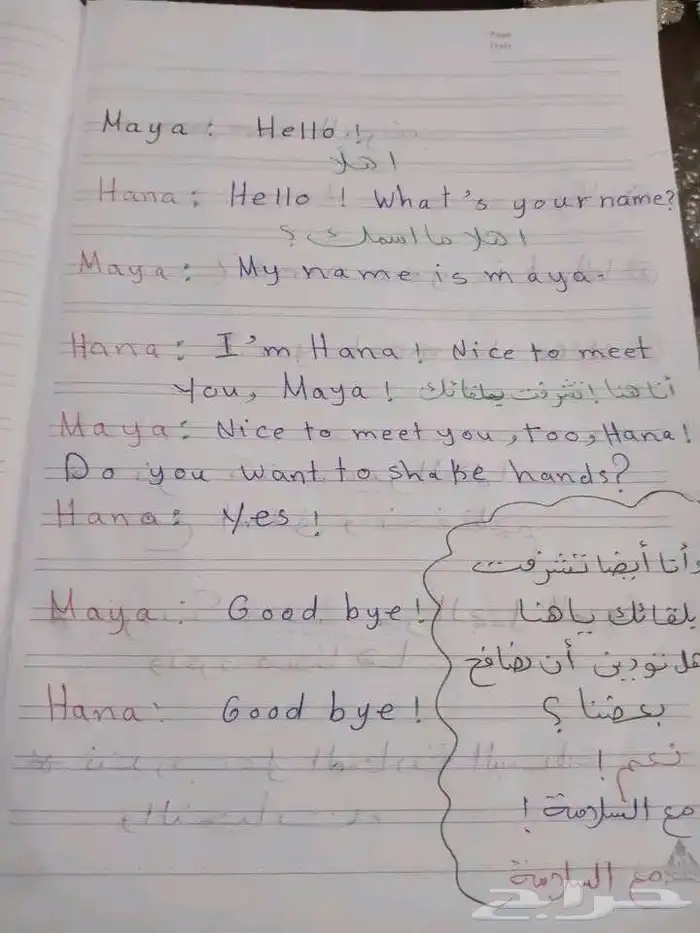 Page
Date
Maya : Hello !
اهلا
Hana : Hello ! What's your name?
اهلا ما اسمك ؟
Maya : My name is maya.
Hana : I'm Hana ! Nice to meet
you, Maya ! أنا هنا! تشرفت بلقائك
Maya : Nice to meet you , too, Hana !
Do you want to shake hands?
Hana : Yes !
وأنا أيضا تشرفت
Maya : Good bye !
بلقائك ياهنا
هل تودين أن نصافح
Hana : Good bye !
بعضنا ؟
نعم !
مع السلامة !
مع السلامة
حراج